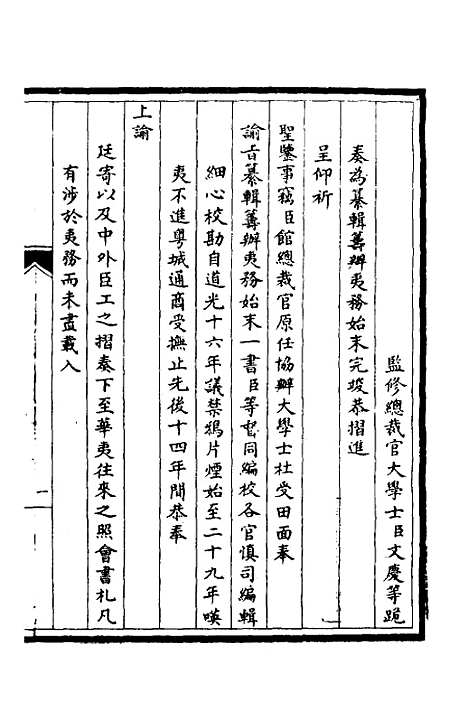 監修總裁官大學士臣文慶等跪
奏為纂輯籌辦夷務始末完竣恭摺進
呈仰祈
聖鑒事竊臣館總裁官原任協辦大學士杜受田面奉
諭旨纂輯籌辦夷務始末一書臣等督同編校各官慎司編輯
細心校勘自道光十六年議禁鴉片煙始至二十九年𠸄
夷不進粵城通商受撫止先後十四年間恭奉
上諭
廷寄以及中外臣工之摺奏下至華夷往來之照會書札凡
有涉於夷務而未盡載入
一